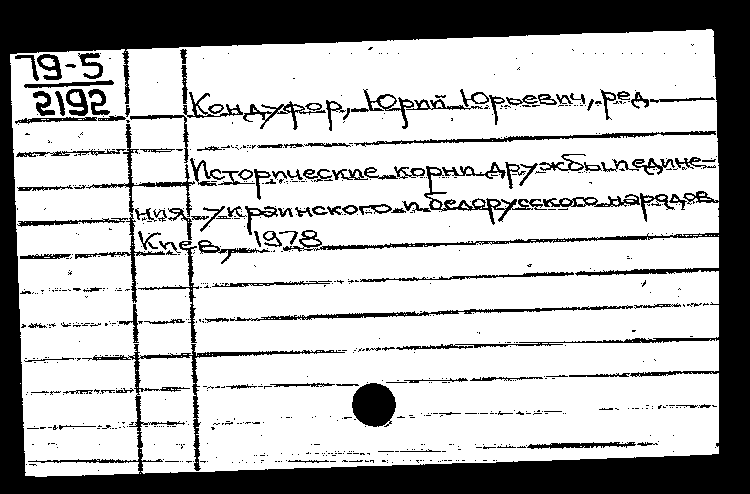 79-5
2192
Кондуфор, Юрий Юрьевич, ред.
Исторические корни дружбы и едине-
ния украинского и белорусского народов
Киев, 1978